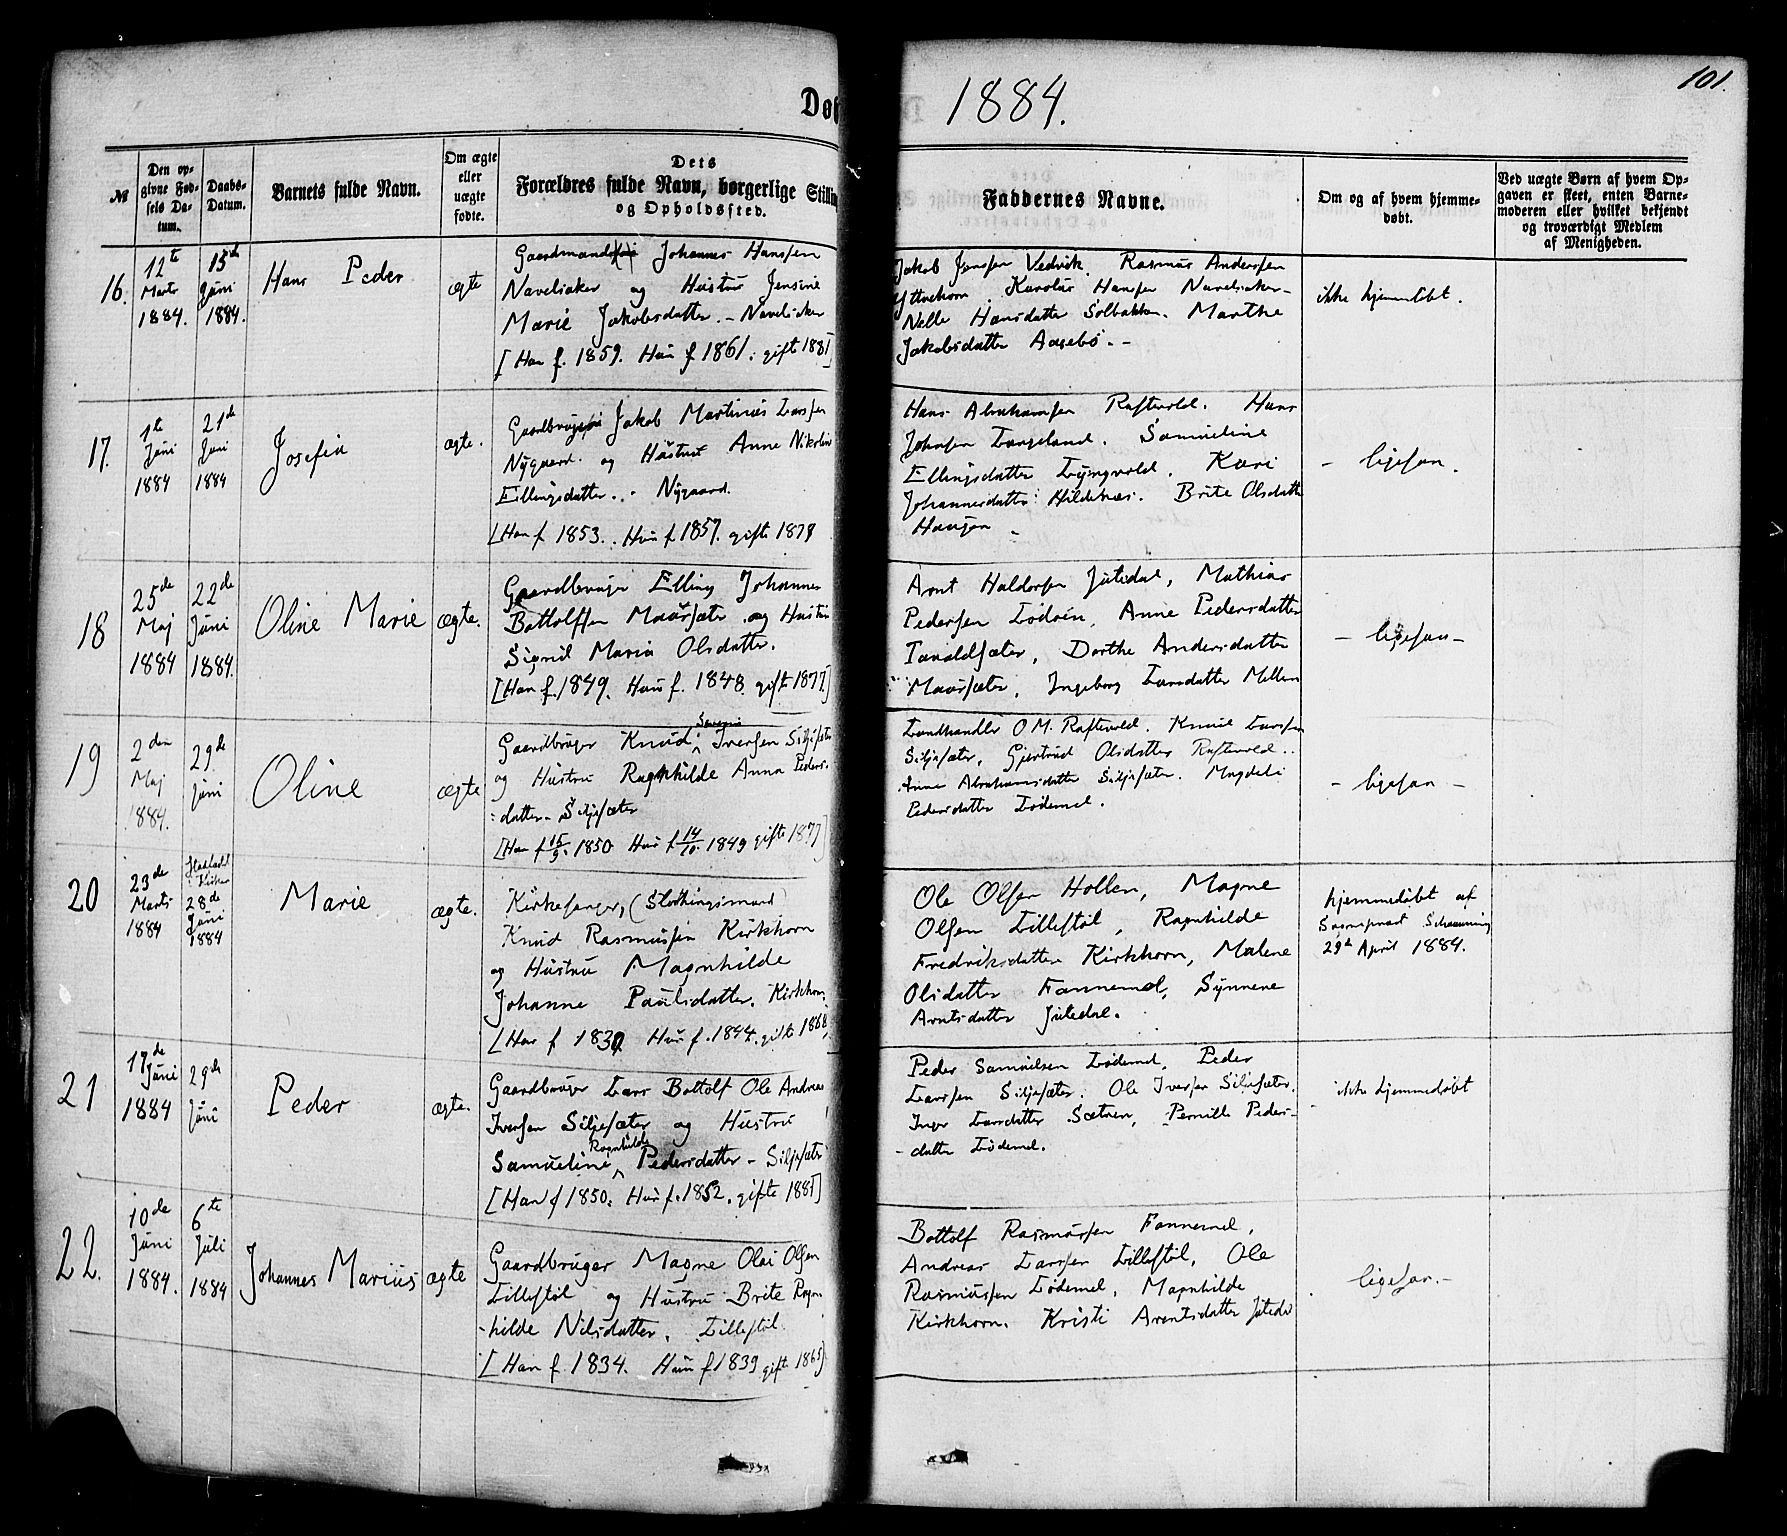 Døb
1884.
101.
№
Den op-
givne Fød-
sels Da-
tum.
Daabs-
Datum.
Barnets fulde Navn.
Om ægte
eller
uægte
fødte.
Dets
Forældres fulde Navn, borgerlige Stillin
og Opholdssted.
Faddernes Navne.
Om og af hvem hjemme-
døbt.
Ved uægte Børn af hvem Op-
gaven er skeet, enten Barne-
moderen eller hvilket bekjendt
og troværdigt Medlem
af Menigheden.
16.
12te
Marts
1884.
15de
Juni
1884.
Hans Peder
ægte
Gaardmand Johannes Hansen
Navelsaker og Hustru Jensine
Marie Jakobsdatter. – Navelsaker
[Han f. 1859. Hun f 1861. gift 1881]
Jakob Jensen Vedvik. Rasmus Andersen
Ytrehorn. Karolus Hansen Navelsaker –
Nelle Hansdatter Solbakken. Marthe
Jakobsdatter Aasebø. –
ikke hjemmedøbt.
17.
1te
Juni
1884
21de
Juni
1884
Josefia
ægte.
Gaardbruger Jakob Martinus Larsen
Nygaard. og Hustru Anne Nikoline
Ellingsdatter. – Nygaard.
[Han f 1853. Hun f 1857. gift 1878
Hans Abrahamsen Raftevold. Hans
Johnsen Langeland. Samueline
Ellingsdatter Lyngvold. Kari
Johannesdatter Hildenes. Brite Olsdatter
Haugen –
– ligesaa.
18
25de
Maj
1884
22de
Juni
1884.
Oline Marie
ægte.
Gaardbruger Elling Johannes
Bottolfsen Maursæter og Hustru
Sigrid Maria Olsdatter.
[Han f. 1849. Hun f. 1848. gift 1877]
Arnt Haldorsen Jutedal, Mathias
Pedersen Lødøen, Anne Pedersdatter
Taraldsæter, Dorthe Andersdatter
Maursæter, Ingeborg Larsdatter Mellem
– ligesaa –
19
2den
Maj
1884.
29de
Juni
Oline
ægte
Severin
Gaardbruger Knud Iversen Siljesæter
og Hustru Ragnhilde Anna Peders-
datter – Siljesæter
[Han f 15/9. 1850. Hun f 14/10. 1849 gift 1877]
Landhandler O M. Raftevold. Knud Larsen
Siljesæter, Gjertrud Olsdatter Raftevold.
Anne Abrahamsdatter Siljesæter. Magdeli
Pedersdatter Lødemel.
– ligesaa –
20
23de
Marts
1884
28de
Juni
1884
Marie
ægte.
Kirkesanger, (Storthingsmand)
Knud Rasmussen Kirkhorn
og Hustru Magnhilde
Johanne Paulsdatter. Kirkhorn.
[Han f 1830 Hun f. 1844. gift 1868.
Ole Olsen Hollen, Magne
Olsen Lillestøl, Ragnhilde
Fredriksdatter Kirkhorn, Malene
Olsdatter Fannemel, Synneve
Arntsdatter Jutedal.
hjemmedøbt af
Sognepræst
29de April 1884.
21
17de
Juni
1884
29de
Juni
Peder
ægte.
Gaardbruger Lars Bottolf Ole Andreas
Iversen Siljesæter og Hustru
Ragnhilde
Samueline Pedersdatter – Siljesæter
[Han f 1850. Hun f. 1852. gifte 1881]
Peder Samuelsen Lødemel, Peder
Larssen Siljesæter. Ole Iversen Siljesæter.
Inger Larsdatter Sætren, Pernille Peders-
– datter Lødemel.
ikke hjemmedøbt
22.
10de
Juni
1884.
6te
Juli
1884
Johannes Marius
ægte
Gaardbruger Magne Olai Olsen
Lillestøl og Hustru Brite Ragn
-hilde Nilsdatter. Lillestøl.
[Han f. 1834. Hun f 1839 gift 1865]
Bottolf Rasmussen Fannemel,
Andreas Larssen Lillestøl, Ole
Rasmussen Lødemel, Magnhilde
Kirkhorn. Kristi Arentsdatter Jutedal
ligesaa. –